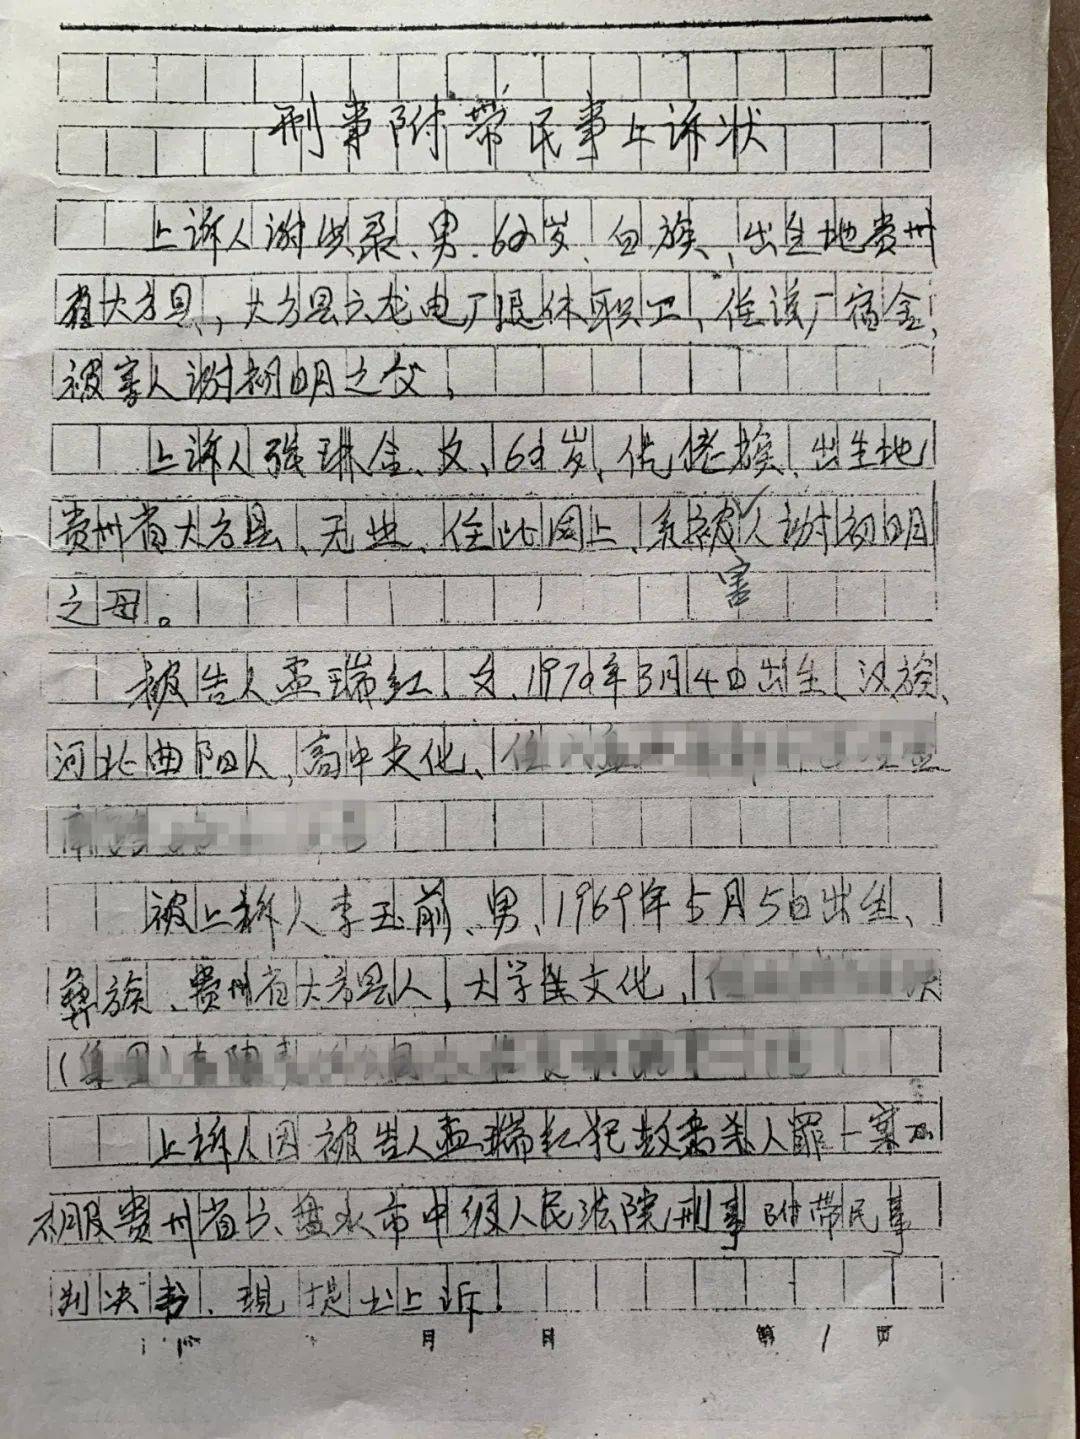 刑事附带民事上诉状
上诉人谢洪录、男、62岁、白族、出生地贵州
省大方县,大方县六龙电厂退休职工、住该厂宿舍、
被害人谢初明之父、
上诉人张琳金、女、63岁、仡佬族、出生地
贵州省大方县、无业、住址同上、系被害人谢初明
之母。
被告人孟瑞红、女、1979年3月4日出生、汉族、
河北曲阳人,高中文化、住
被上诉人李玉前、男、1969年5月5日出生、
彝族、贵州省大方县人,大学文化,
(集团)
上诉人因被告人孟瑞红犯故意杀人罪一案不
服贵州省六盘水市中级人民法院刑事附带民事
判决书、现提出上诉.
月 日 第1页